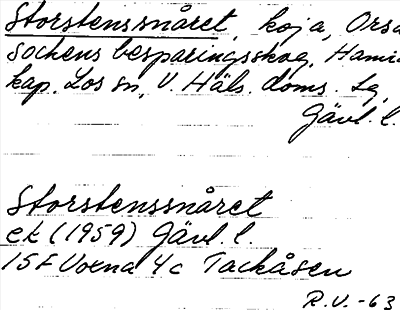 Storstenssnåret, koja, Orsa
sockens besparingsskog, Hamra
kap. Los sn, V. Häls. doms. lg,
Gävl. l.
Storstenssnåret
ek (1959) Gävl. l.
15F Voxna 4c Tackåsen
R.V. -63